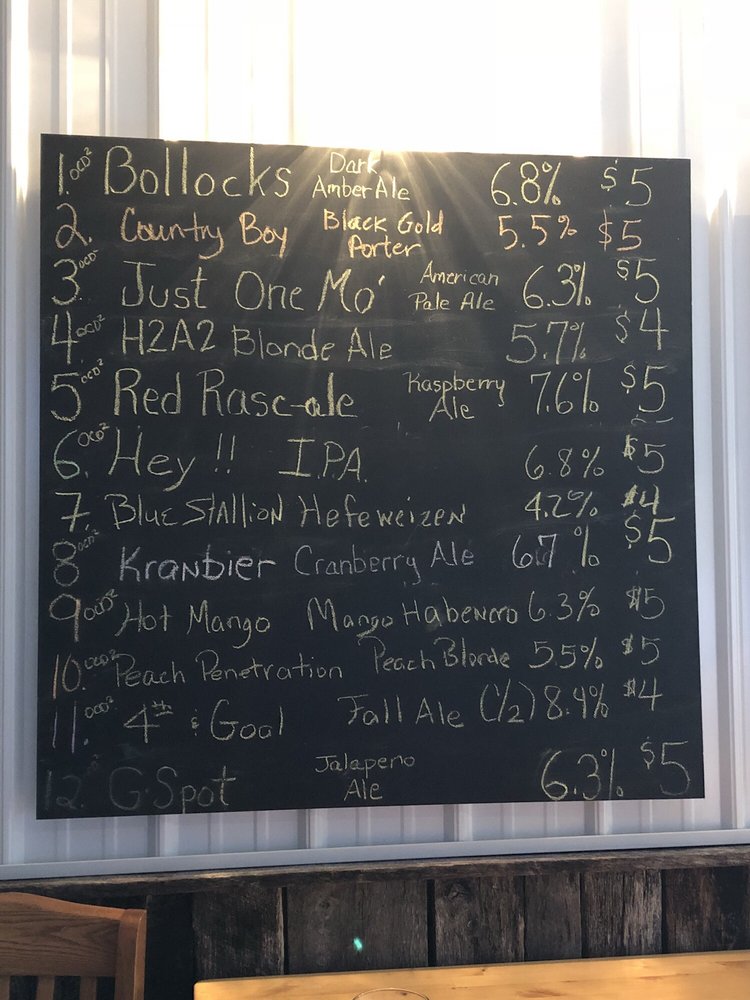 1. OCD² Bollocks Dark Amber Ale 6.8% $5
2. Country Boy Black Gold Porter 5.5% $5
3. OCD² Just One Mo' American Pale Ale 6.3% $5
4. OCD² H2A2 Blonde Ale 5.7% $4
5. OCD² Red Rasc-ale Raspberry Ale 7.6% $5
6. OCD² Hey!! I.P.A. 6.8% $5
7. Blue Stallion Hefeweizen 4.2% $4
8. OCD² Kranbier Cranberry Ale 6.7% $5
9. OCD² Hot Mango Mango Habenero 6.3% $5
10. OCD² Peach Penetration Peach Blonde 5.5% $5
11. OCD² 4th & Goal Fall Ale (1/2) 8.4% $4
12. G-Spot Jalapeno Ale 6.3% $5